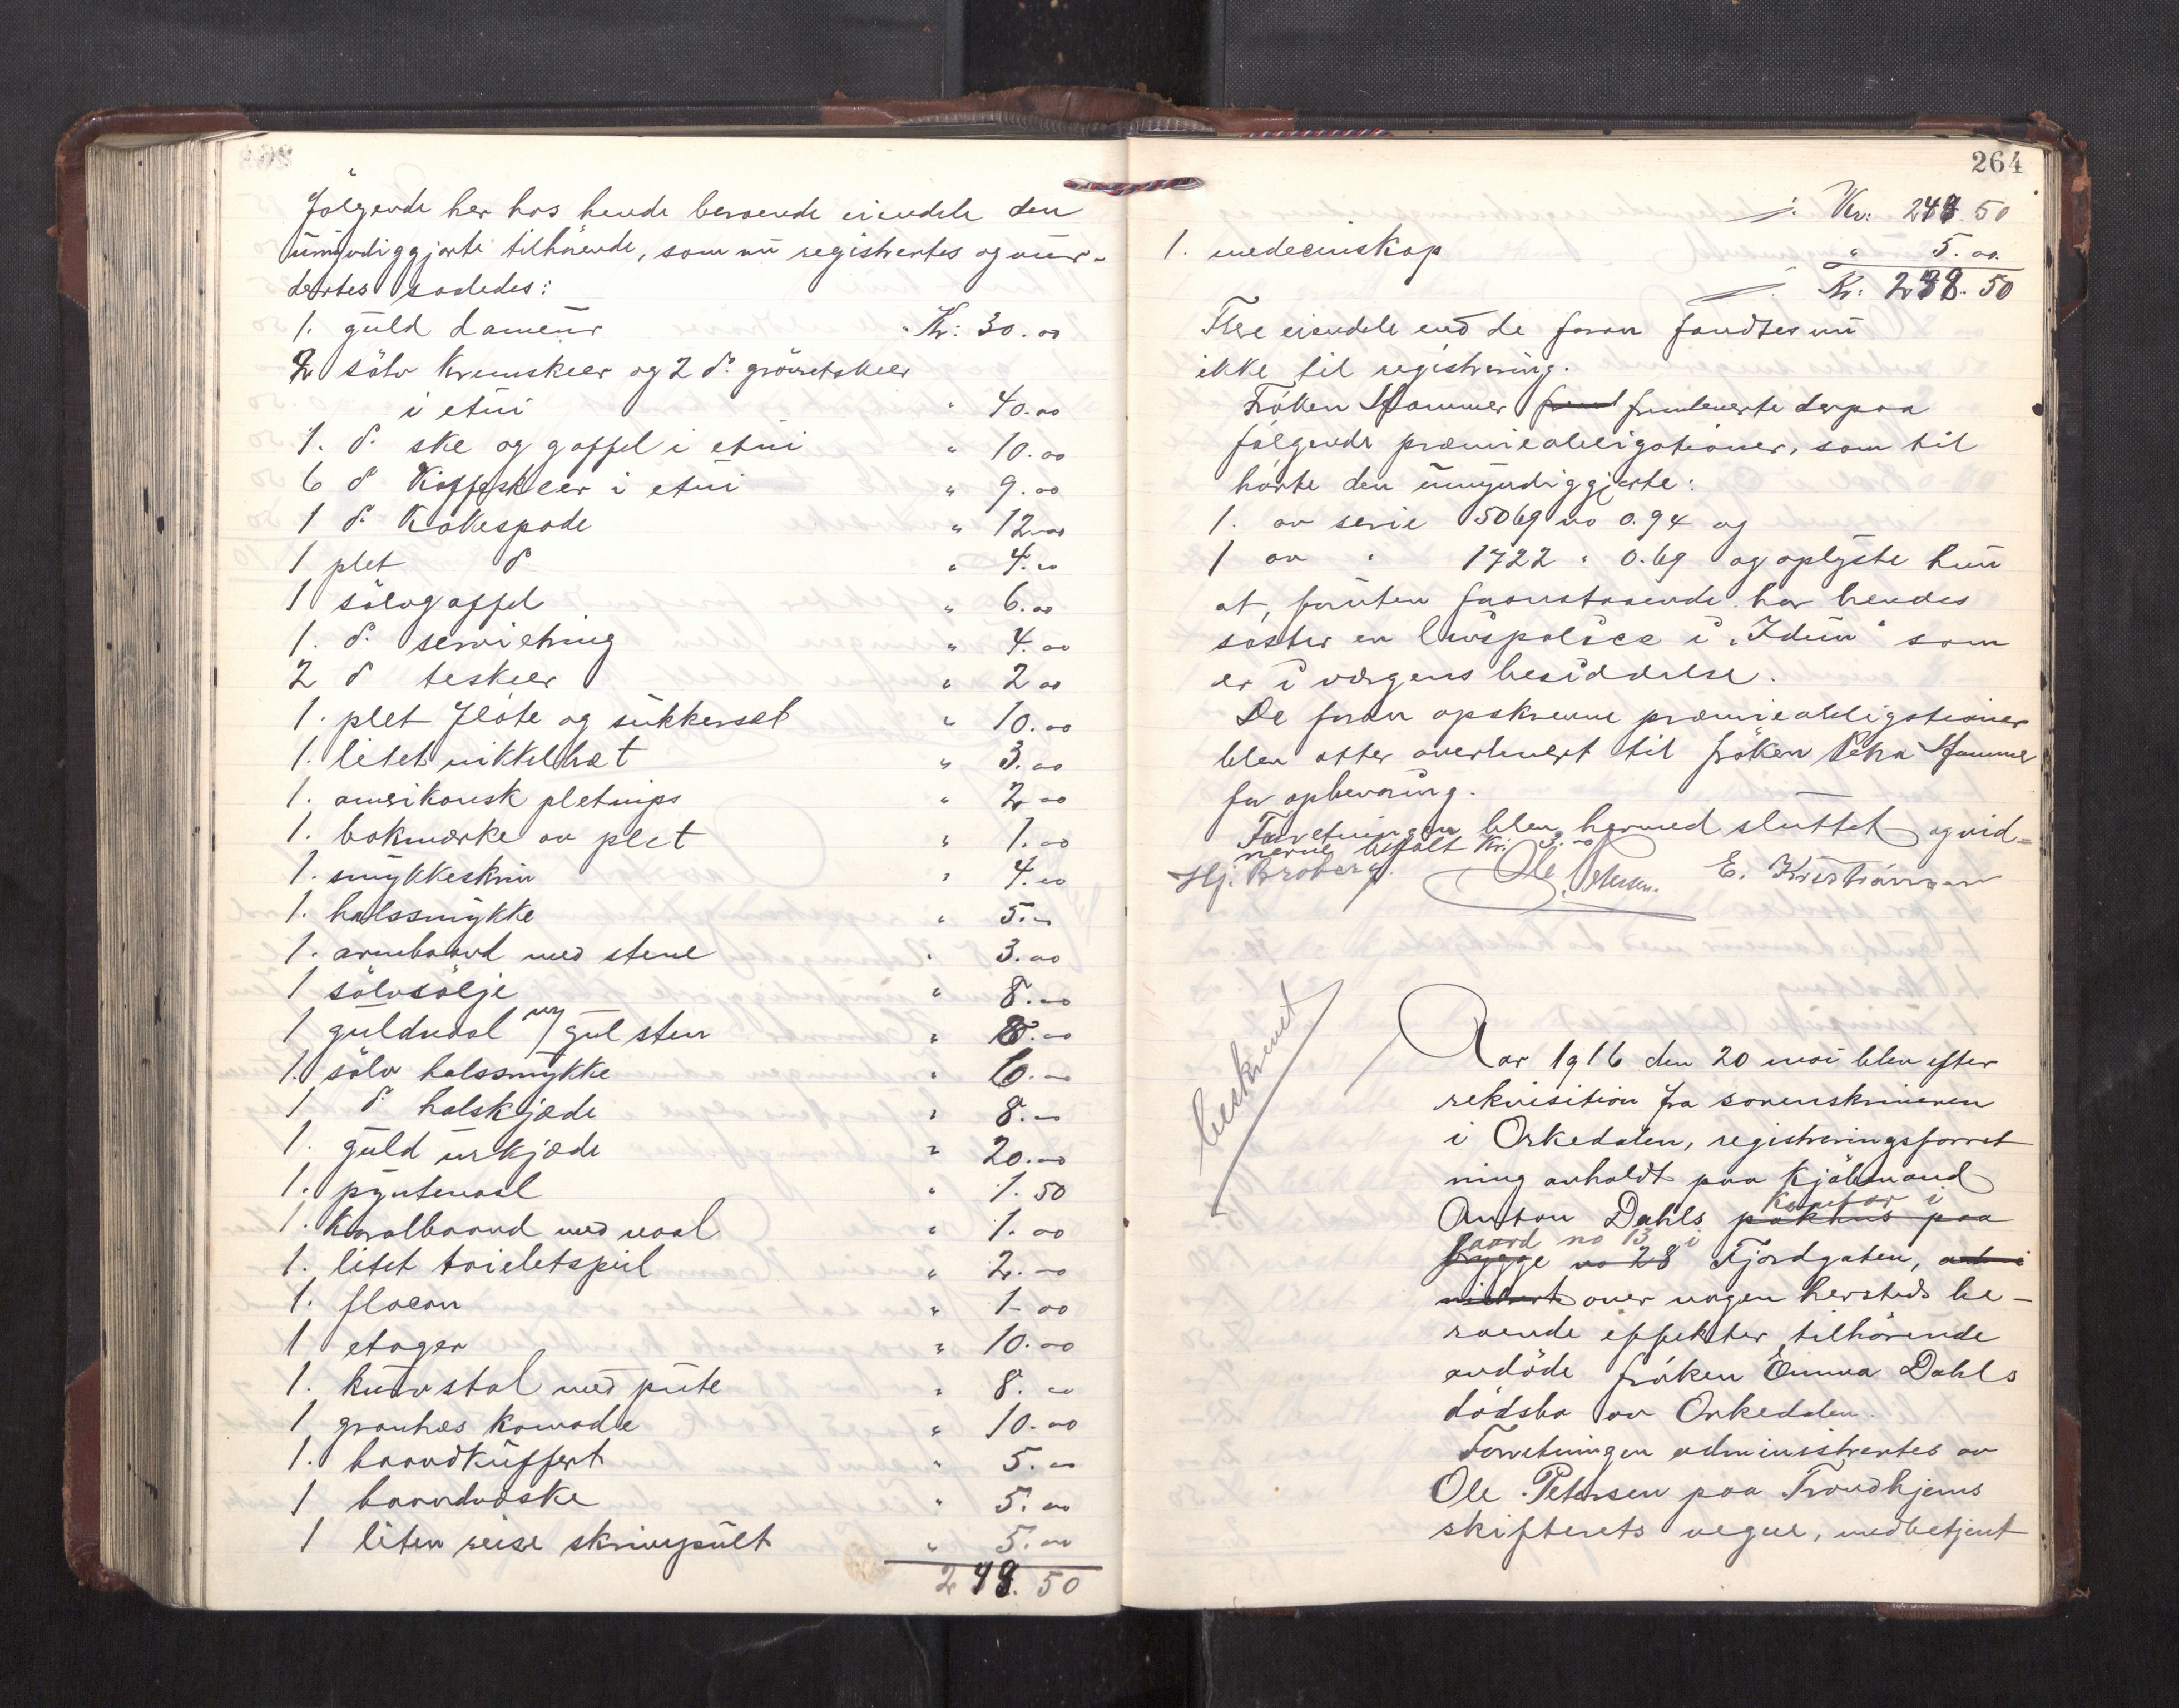 følgende her hos hende beroende eiendele den
umyndiggjorte tilhørende, som nu registrertes og vur-
dertes saaledes:
1. guld dameur Kr: 30.00
2 sølv kremskeer og 2 do grøretskeer
i etui " 40.00
1. do ske og gaffel i etui " 10.00
6 do Kaffeskeer i etui " 9.00
1 do Kakespade " 12.00
1 plet do " 4.00
1 sølvgaffel " 6.00
1. do serviettring " 4.00
2 do teskeer " 2.00
1. plet fløte og sukkersæt " 10.00
1. litet nikkelbræt " 3.00
1. amerikansk pletnips " 2.00
1. bokmærke av plet " 1.00
1. smykkeskrin " 4.00
1. halssmykke " 5.00
1. armbaand med stene " 3.00
1 sølvsølje " 8.00
1 guldnaal m/ gul sten " 8.00
1. sølv halssmykke " 6.00
1 do halskjæde " 8.00
1. guld urkjæde " 20.00
1. pyntenaal " 1.50
1. Koralbaand med naal " 1.00
1. litet toiletspeil " 2.00
1. flacon " 1.00
1 etager " 10.00
1. kurvstol med pute " 8.00
1 granhæs komode " 10.00
1. haandkuffert " 5.00
1 haandvæske " 5.00
1 liten reise skrivepult " 5.00
248.50
264
./. Kr: 248.50
1. medecinskap " 5.00
./. Kr: 238.50
Flere eiendele end de foran fandtes nu
ikke til registrering.
Frøken Hammer fremleverte derpaa
følgende præmieobligationer, som til
hørte den umyndiggjorte:
1. av serie 5069 no 0.94 og
1 av " 1722 " 0.69 og oplyste hun
at, foruten foranstaaende har hendes
søster en livspolice i "Idun" som
er i værgens besiddelse.
De foran opskrevne præmieobligationer
blev atter overlevert til frøken Hammer
for opbevaring.
Forretningen blev hermed sluttet og vid-
nerne betalt Kr.
Hj. Broberg. Ole Petersen. E. Kristiansen
beskrevet
Aar 1916 den 20 mai blev efter
rekvisition fra sorenskriveren
i Orkedalen, registreringsforret
ning avholdt paa kjøbmand
Anton Dahls pakhus paa kontor i
brygge no 28 gaard no 13 i Fjordgaten,
over nogen hersteds be-
roende effekter tilhørende
avdøde frøken Emma Dahls
dødsbo av Orkedalen.
Forretningen administrertes av
Ole Petersen paa Trondhjems
skifterets vegne, medbetjent